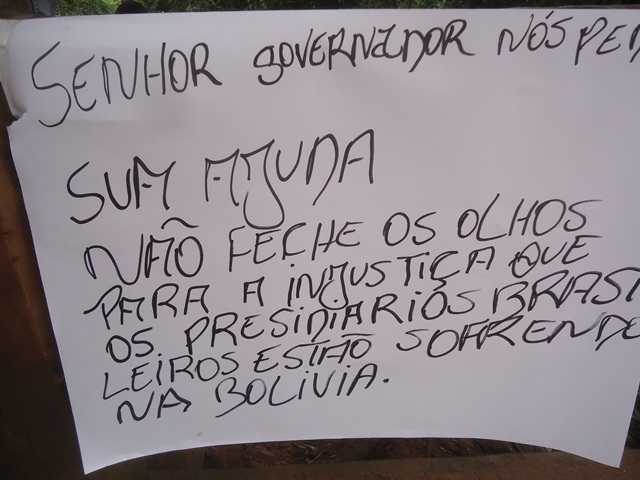 SENHOR GOVERNADOR NÓS PED
SUA AJUDA
NÃO FECHE OS OLHOS
PARA A INJUSTIÇA QUE
OS PRESIDIARIOS BRASI
LEIROS ESTÃO SOFRENDO
NA BOLIVIA.